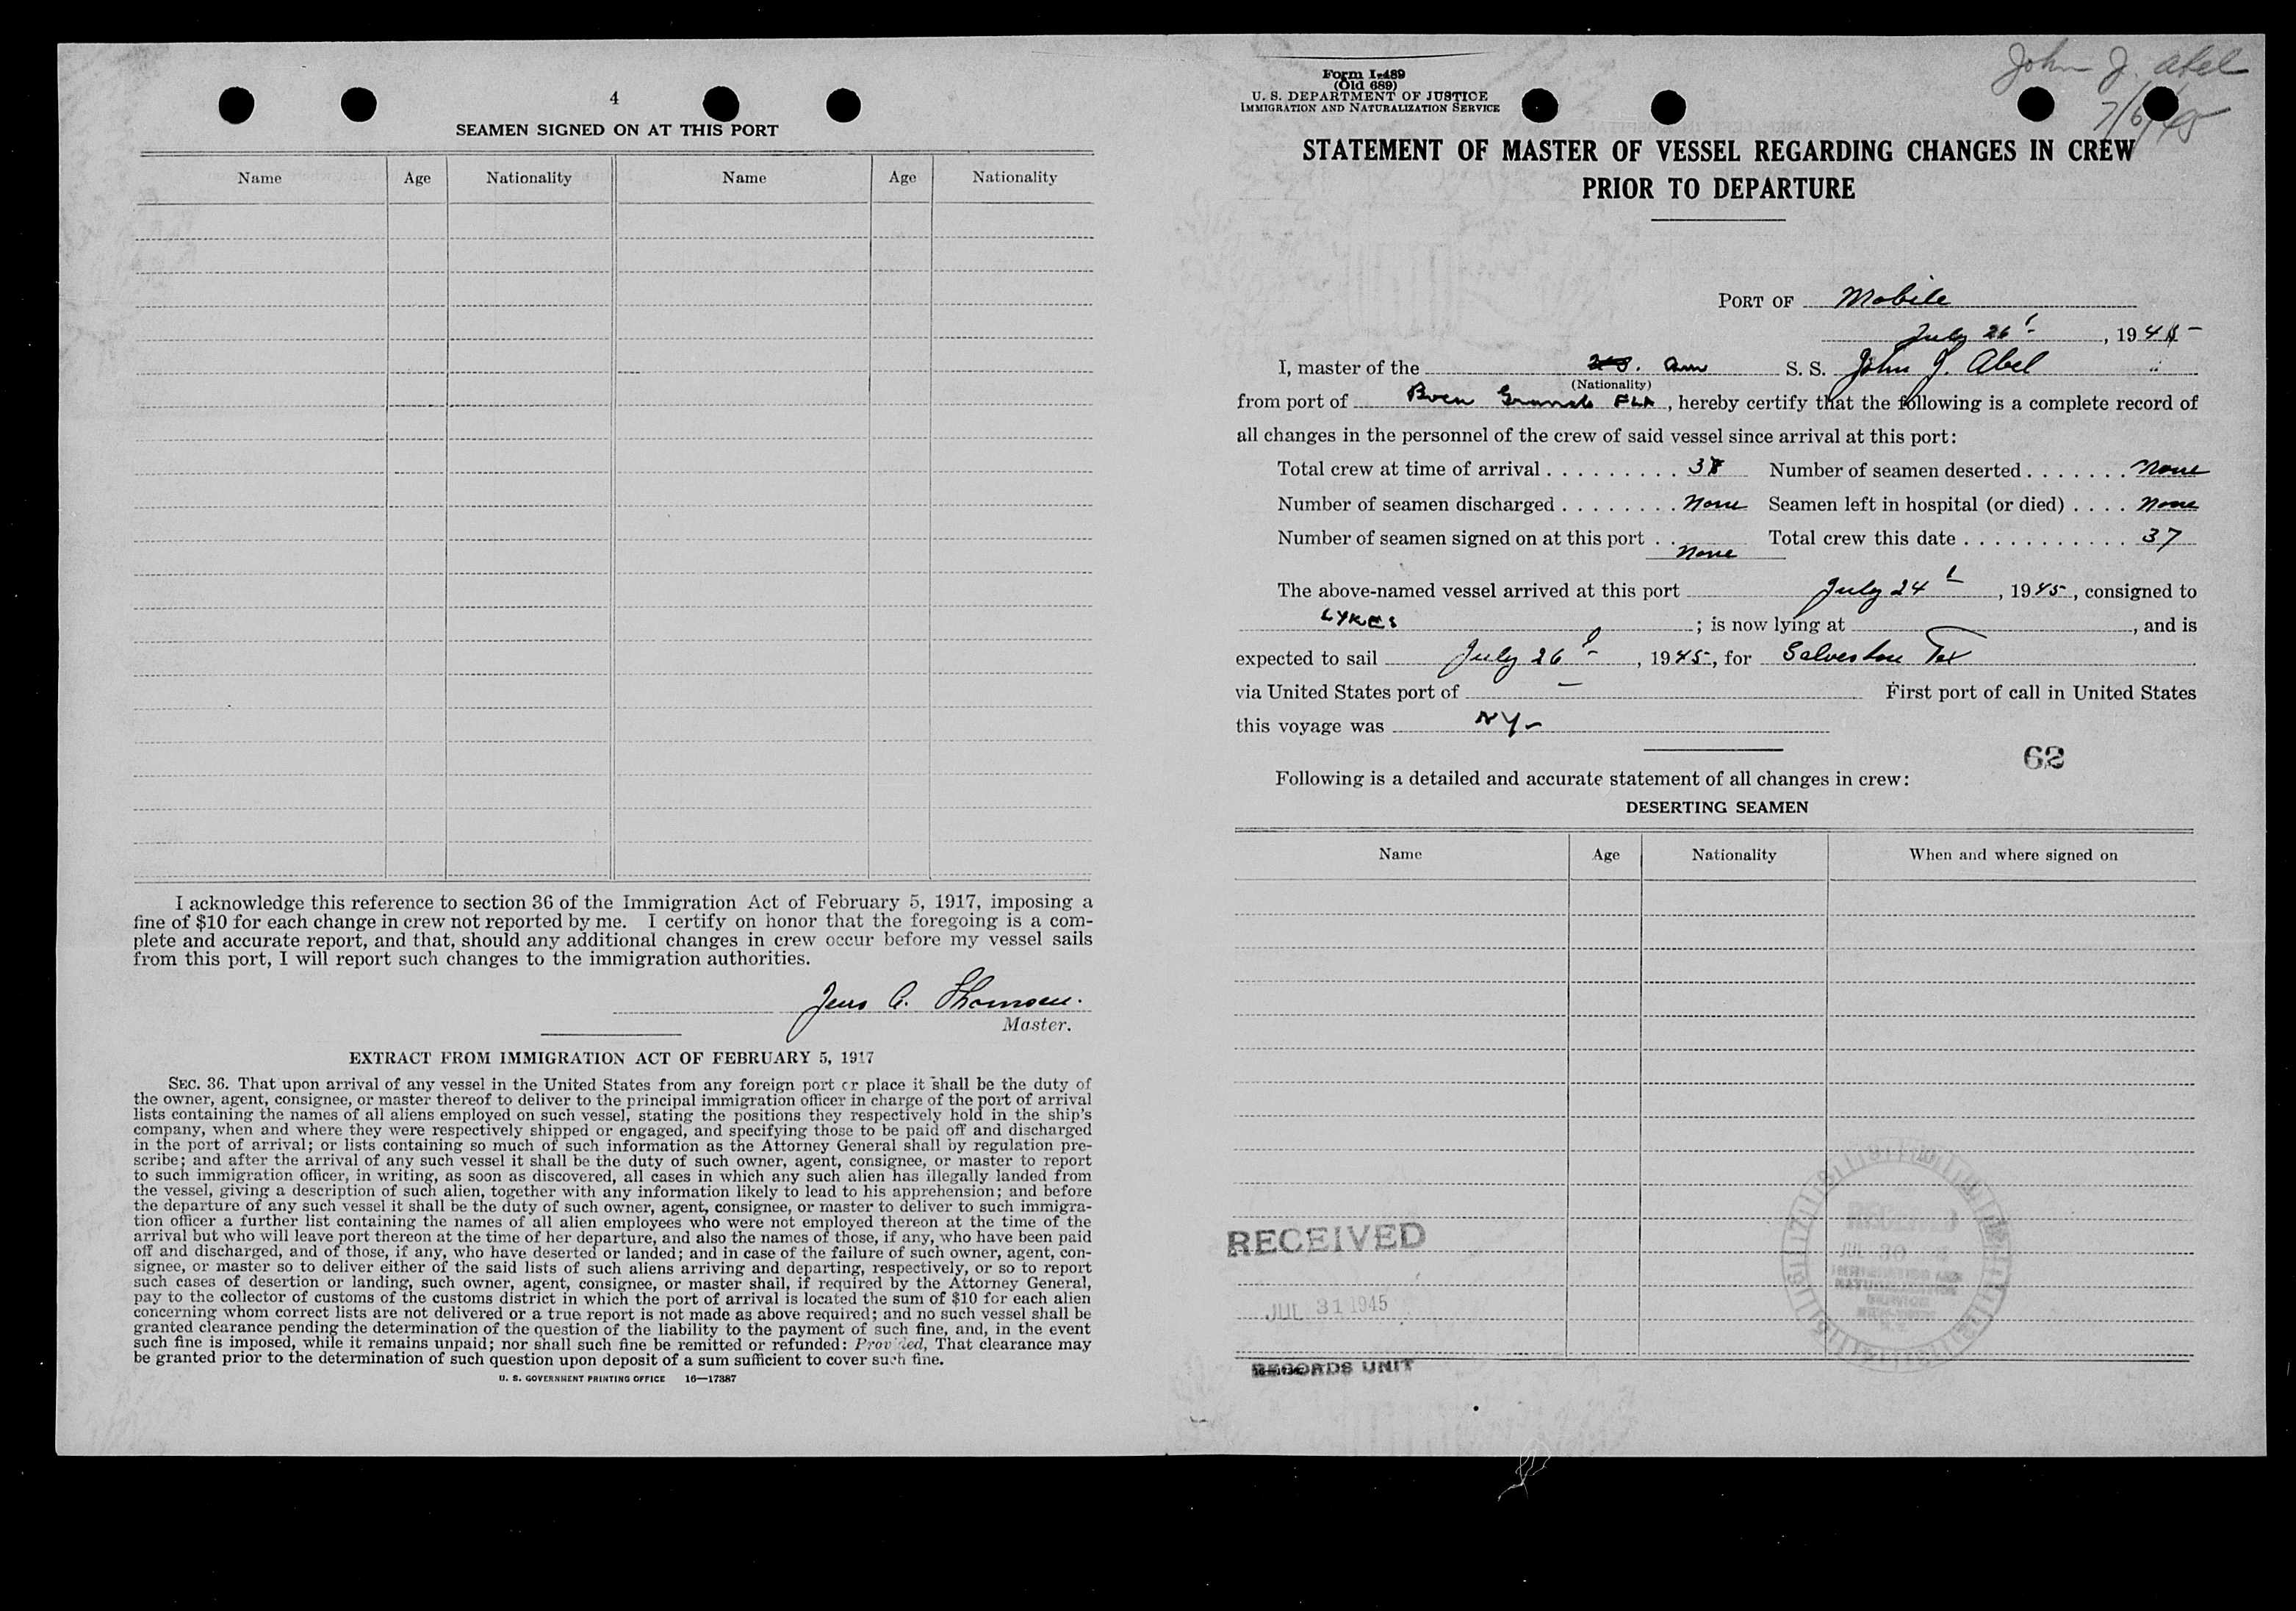 4
SEAMEN SIGNED ON AT THIS PORT
Name Age Nationality Name Age Nationality
I acknowledge this reference to section 36 of the Immigration Act of February 5, 1917, imposing a
fine of $10 for each change in crew not reported by me. I certify on honor that the foregoing is a com-
plete and accurate report, and that, should any additional changes in crew occur before my vessel sails
from this port, I will report such changes to the immigration authorities.
Jens A. Thomsen.
Master.
EXTRACT FROM IMMIGRATION ACT OF FEBRUARY 5, 1917
SEC. 36. That upon arrival of any vessel in the United States from any foreign port or place it shall be the duty of
the owner, agent, consignee, or master thereof to deliver to the principal immigration officer in charge of the port of arrival
lists containing the names of all aliens employed on such vessel, stating the positions they respectively hold in the ship's
company, when and where they were respectively shipped or engaged, and specifying those to be paid off and discharged
in the port of arrival; or lists containing so much of such information as the Attorney General shall by regulation pre-
scribe; and after the arrival of any such vessel it shall be the duty of such owner, agent, consignee, or master to report
to such immigration officer, in writing, as soon as discovered, all cases in which any such alien has illegally landed from
the vessel, giving a description of such alien, together with any information likely to lead to his apprehension; and before
the departure of any such vessel it shall be the duty of such owner, agent, consignee, or master to deliver to such immigra-
tion officer a further list containing the names of all alien employees who were not employed thereon at the time of the
arrival but who will leave port thereon at the time of her departure, and also the names of those, if any, who have been paid
off and discharged, and of those, if any, who have deserted or landed; and in case of the failure of such owner, agent, con-
signee, or master so to deliver either of the said lists of such aliens arriving and departing, respectively, or so to report
such cases of desertion or landing, such owner, agent, consignee, or master shall, if required by the Attorney General,
pay to the collector of customs of the customs district in which the port of arrival is located the sum of $10 for each alien
concerning whom correct lists are not delivered or a true report is not made as above required; and no such vessel shall be
granted clearance pending the determination of the question of the liability to the payment of such fine, and, in the event
such fine is imposed, while it remains unpaid; nor shall such fine be remitted or refunded: Provided, That clearance may
be granted prior to the determination of such question upon deposit of a sum sufficient to cover such fine.
U. S. GOVERNMENT PRINTING OFFICE 16—17387
John J. Abel
7/6/45
Form I-489
(Old 689)
U. S. DEPARTMENT OF JUSTICE
IMMIGRATION AND NATURALIZATION SERVICE
STATEMENT OF MASTER OF VESSEL REGARDING CHANGES IN CREW
PRIOR TO DEPARTURE
PORT OF Mobile
July 26, 1945
I, master of the Am S. S. John J. Abel
(Nationality)
from port of Boca Grande FLA, hereby certify that the following is a complete record of
all changes in the personnel of the crew of said vessel since arrival at this port:
Total crew at time of arrival . . . . . . . . . Number of seamen deserted . . . . . . . None
Number of seamen discharged . . . . . . . . None Seamen left in hospital (or died) . . . . None
Number of seamen signed on at this port . . None Total crew this date . . . . . . . . . . . . 37
The above-named vessel arrived at this port July 24, 1945, consigned to
LYKES ; is now lying at , and is
expected to sail July 26, 1945, for Galveston Tex
via United States port of — First port of call in United States
this voyage was NY-
62
Following is a detailed and accurate statement of all changes in crew:
DESERTING SEAMEN
Name Age Nationality When and where signed on
RECEIVED
JUL 31 1945
RECORDS UNIT
RECEIVED
JUL 30
IMMIGRATION AND
NATURALIZATION
SERVICE